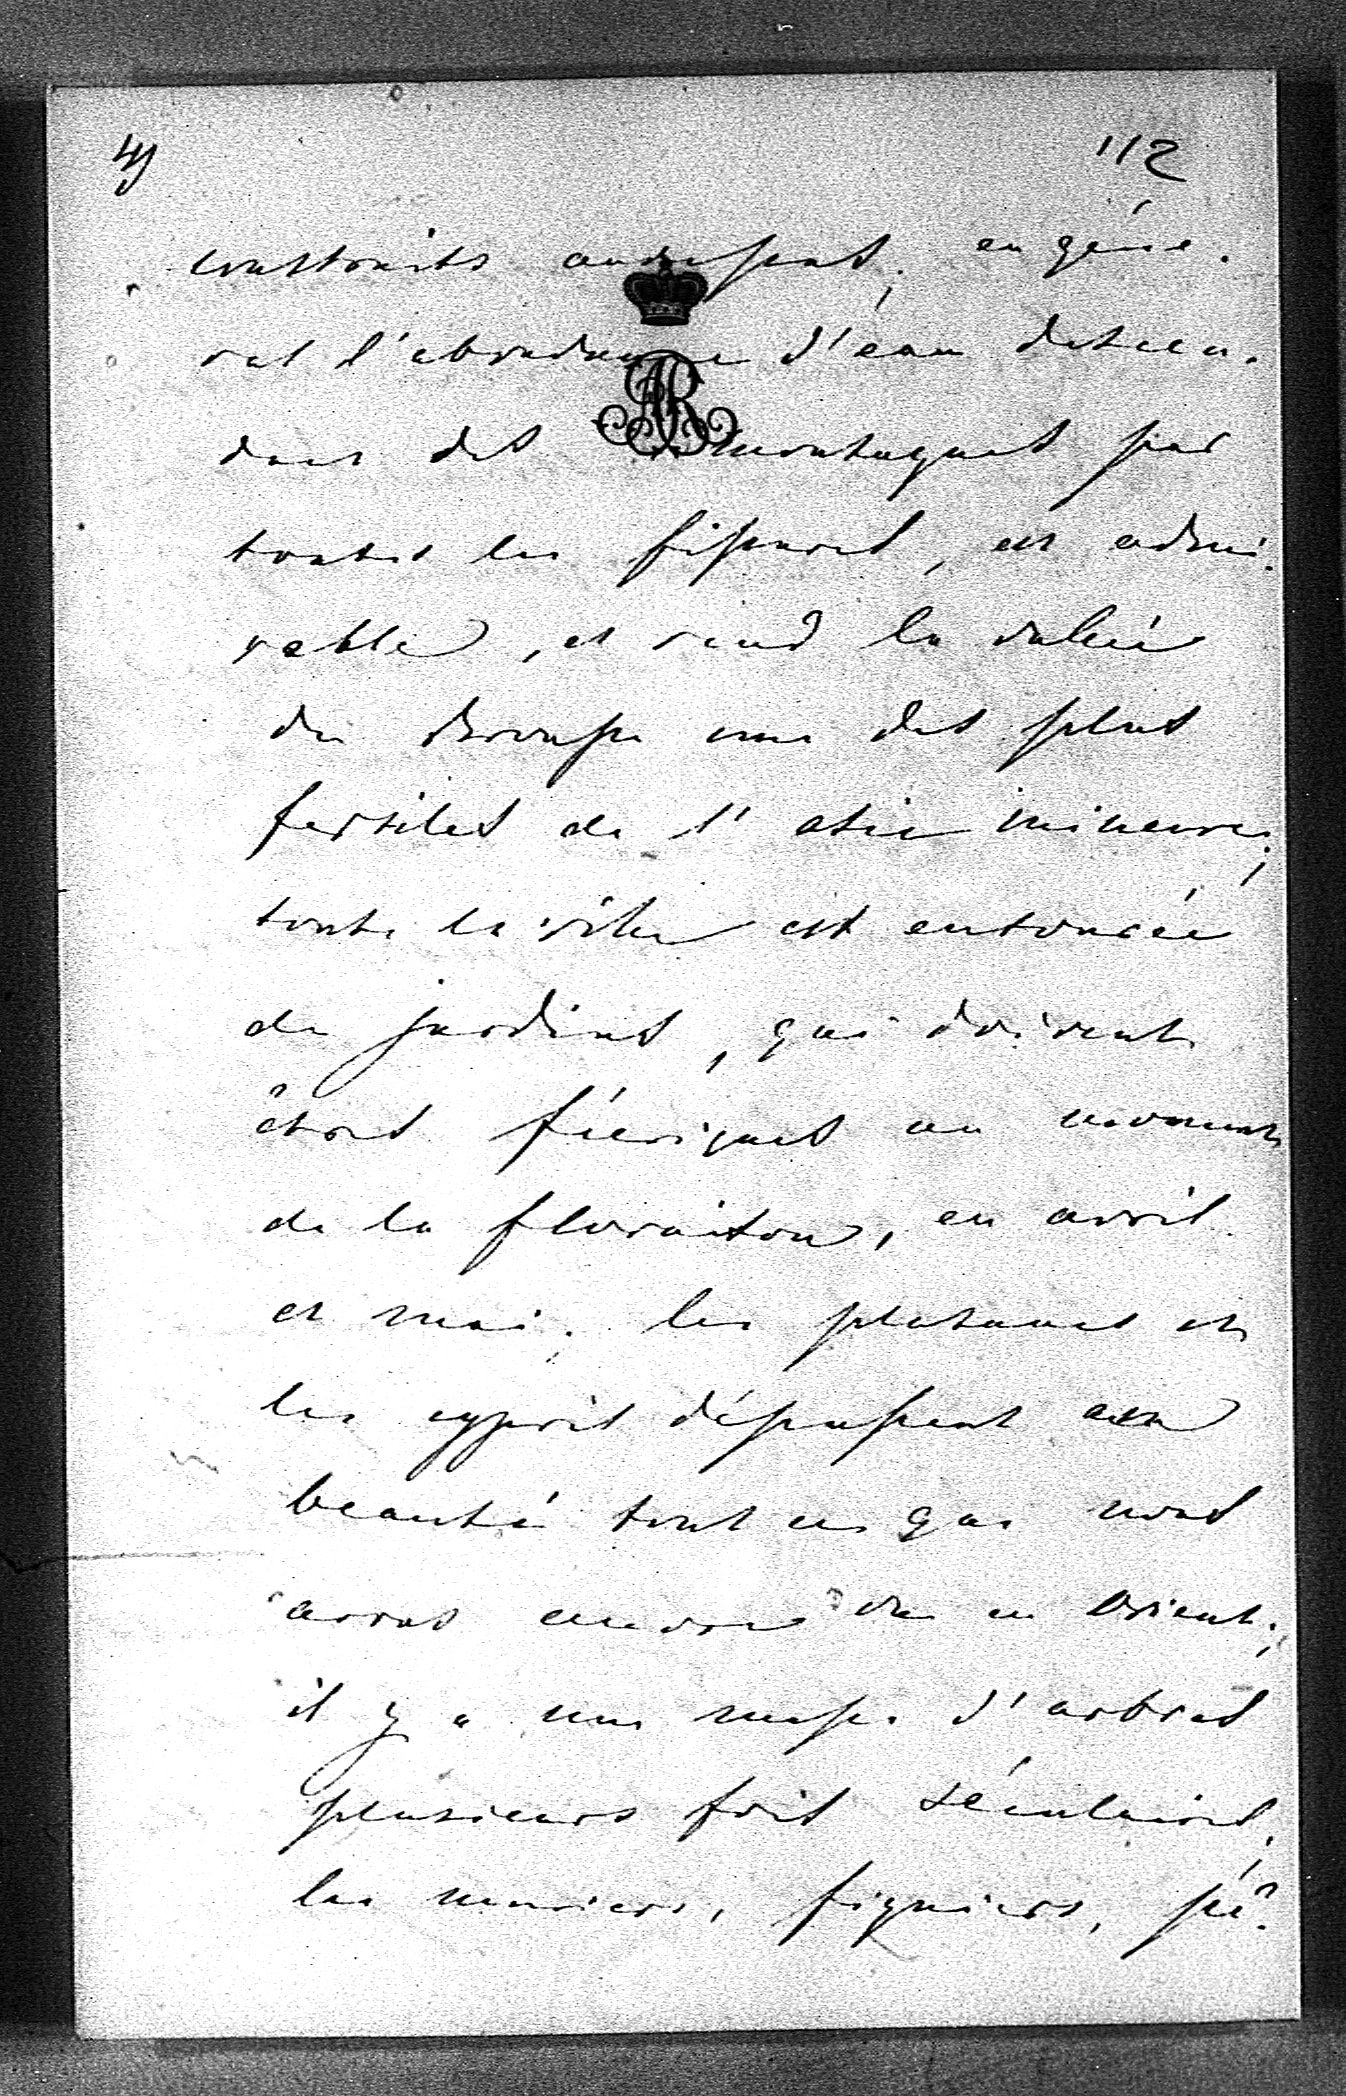 4)
112
construits au dessus; en géné-
ral l'abondance d'eau descen-
dant des montagnes par
toutes les fissures, est admi-
rable, et rend la vallée
de Brousse une des plus
fertiles de l'asie mineure;
toute la ville est entourée
de jardins, qui doivent
êtres féeriques au moment
de la floraison, en avril
et mai; les platanes et
les cyprès dépassent en
beauté tout ce que nous
avons encore vu en Orient;
il y a une masse d'arbres
plusieurs fois séculaires,
les muriers, figuiers, pê-